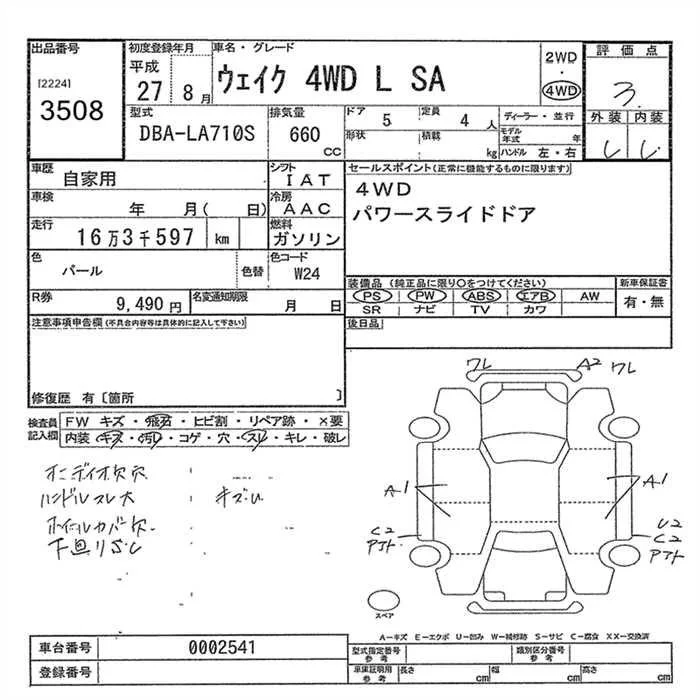 出品番号
[2224]
3508
初度登録年月
平成
27 8月
車名・グレード
ウェイク 4WD L SA
2WD
・
4WD
評価点
3
外装 内装
型式
DBA-LA710S
排気量
660
CC
ドア 5
定員 4 人
形状
積載 kg
ディーラー・並行
モデル年式 年
ハンドル 左・右
車歴
自家用
シフト
IAT
車検
年 月( 日)
冷房
AAC
走行
16万3千597 km
燃料
ガソリン
色
パール
色替
色コード
W24
R券
9,490円
名変通知期限
月 日
セールスポイント(正常に機能するものに限ります)
4WD
パワースライドドア
装備品(純正品に限り○をつけてください)
PS PW ABS エアB AW
SR ナビ TV カワ
新車保証書
有・無
後日品
注意事項申告欄(不具合内容等は具体的に記入して下さい)
修復歴 有〔箇所 〕
検査員記入欄
FW キズ・飛石・ヒビ割・リペア跡・×要
内装・キズ・汚レ・コゲ・穴・スレ・キレ・破レ
オーディオ欠穴
ハンドルスレ大 キズU
ホイールカバー欠
下廻りSU
ワレ A2 ワレ
A1 A1
C2 U2
アト C2
アト
スペア
A−キズ E−エクボ U−凹み W−補修跡 S−サビ C−腐食 XX−交換済
車台番号
0002541
登録番号
型式指定番号
参考
類別区分番号
参考
車庫証明用
参考
長さ cm
幅 cm
高さ cm